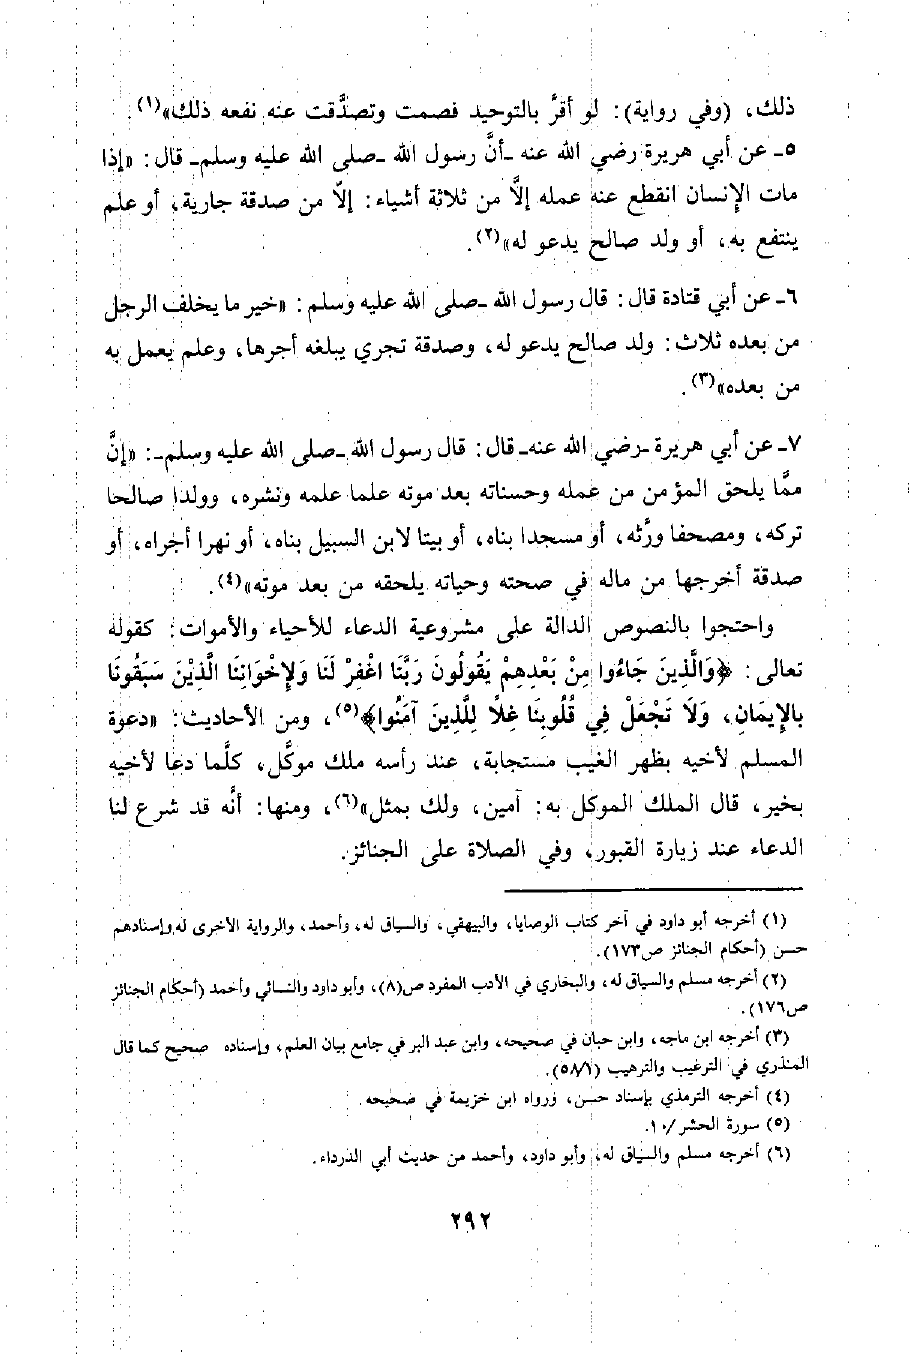 ذلك، (وفي رواية): لو أقرَّ بالتوحيد فصمت وتصدَّقت عنه نفعه ذلك»(١).
٥ـ عن أبي هريرة رضي الله عنه ـأنَّ رسول الله ـصلى الله عليه وسلمـ قال: «إذا
مات الإنسان انقطع عنه عمله إلَّا من ثلاثة أشياء: إلّا من صدقة جارية، أو علم
ينتفع به، أو ولد صالح يدعو له»(٢).
٦ـ عن أبي قتادة قال: قال رسول الله ـصلى الله عليه وسلم: «خير ما يخلف الرجل
من بعده ثلاث: ولد صالح يدعو له، وصدقة تجري يبلغه أجرها، وعلم يعمل به
من بعده»(٣).
٧ـ عن أبي هريرة ـرضي الله عنهـ قال: قال رسول الله ـصلى الله عليه وسلمـ: «إنَّ
ممَّا يلحق المؤمن من عمله وحسناته بعد موته علما علمه ونشره، وولدا صالحا
تركه، ومصحفا ورَّثه، أو مسجدا بناه، أو بيتا لابن السبيل بناه، أو نهرا أجراه، أو
صدقة أخرجها من ماله في صحته وحياته يلحقه من بعد موته»(٤).
واحتجوا بالنصوص الدالة على مشروعية الدعاء للأحياء والأموات: كقوله
تعالى: ﴿وَالَّذِينَ جَاءُوا مِنْ بَعْدِهِمْ يَقُولُونَ رَبَّنَا اغْفِرْ لَنَا وَلِإخْوَانِنَا الَّذِيْنَ سَبَقُونَا
بالإِيمَانِ، وَلَا تَجْعَلْ فِي قُلُوبِنَا غِلًّا لِلَّذِينَ آمَنُوا﴾(٥)، ومن الأحاديث: «دعوة
المسلم لأخيه بظهر الغيب مستجابة، عند رأسه ملك موكَّل، كلَّما دعا لأخيه
بخير، قال الملك الموكل به: آمين، ولك بمثل»(٦)، ومنها: أنَّه قد شرع لنا
الدعاء عند زيارة القبور، وفي الصلاة على الجنائز.
(١) أخرجه أبو داود في آخر كتاب الوصايا، والبيهقي، والسياق له، وأحمد، والرواية الأخرى له وإسنادهم
حسن (أحكام الجنائز ص١٧٣).
(٢) أخرجه مسلم والسياق له، والبخاري في الأدب المفرد ص(٨)، وأبو داود والنسائي وأحمد (أحكام الجنائز
ص١٧٦).
(٣) أخرجه ابن ماجه، وابن حبان في صحيحه، وابن عبد البر في جامع بيان العلم، وإسناده صحيح كما قال
المنذري في الترغيب والترهيب (٥٨/١).
(٤) أخرجه الترمذي بإسناد حسن، ورواه ابن خزيمة في صحيحه.
(٥) سورة الحشر/١٠.
(٦) أخرجه مسلم والسياق له، وأبو داود، وأحمد من حديث أبي الدرداء.
٢٩٢